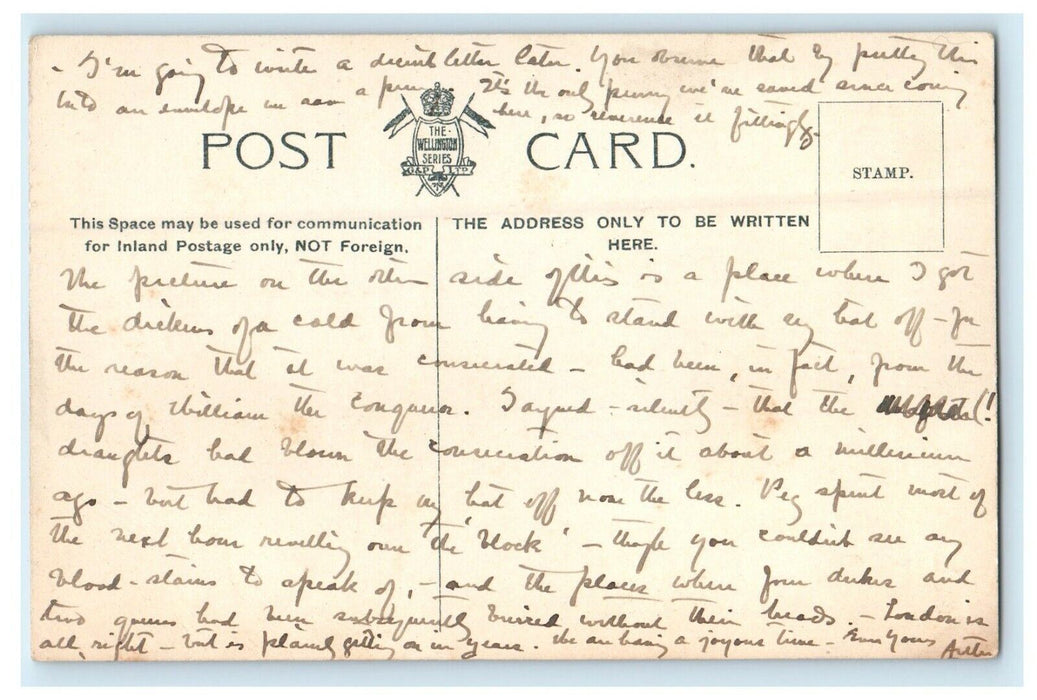 - I'm going to write a decent letter later. You observe that by putting this
into an envelope we save a penny. It's the only penny we've saved since coming
here, so reverence it fittingly.
POST CARD.
THE
WELLINGTON
SERIES
G&P LTD
STAMP.
This Space may be used for communication
for Inland Postage only, NOT Foreign.
THE ADDRESS ONLY TO BE WRITTEN
HERE.
The picture on the other side of this is a place where I got
the dickens of a cold from having to stand with my hat off - for
the reason that it was consecrated - had been, in fact, from the
days of William the Conqueror. I argued - silently - that the (!
draughts had blown the consecration off it about a millenium
ago - but had to keep my hat off none the less. Peg spent most of
the next hour revelling over the 'block' - though you couldn't see any
blood-stains to speak of, - and the places where four dukes and
two queens had been subsequently buried without their heads. - London is
all right - but is plainly getting on in years. We are having a joyous time - Ever yours Arthur